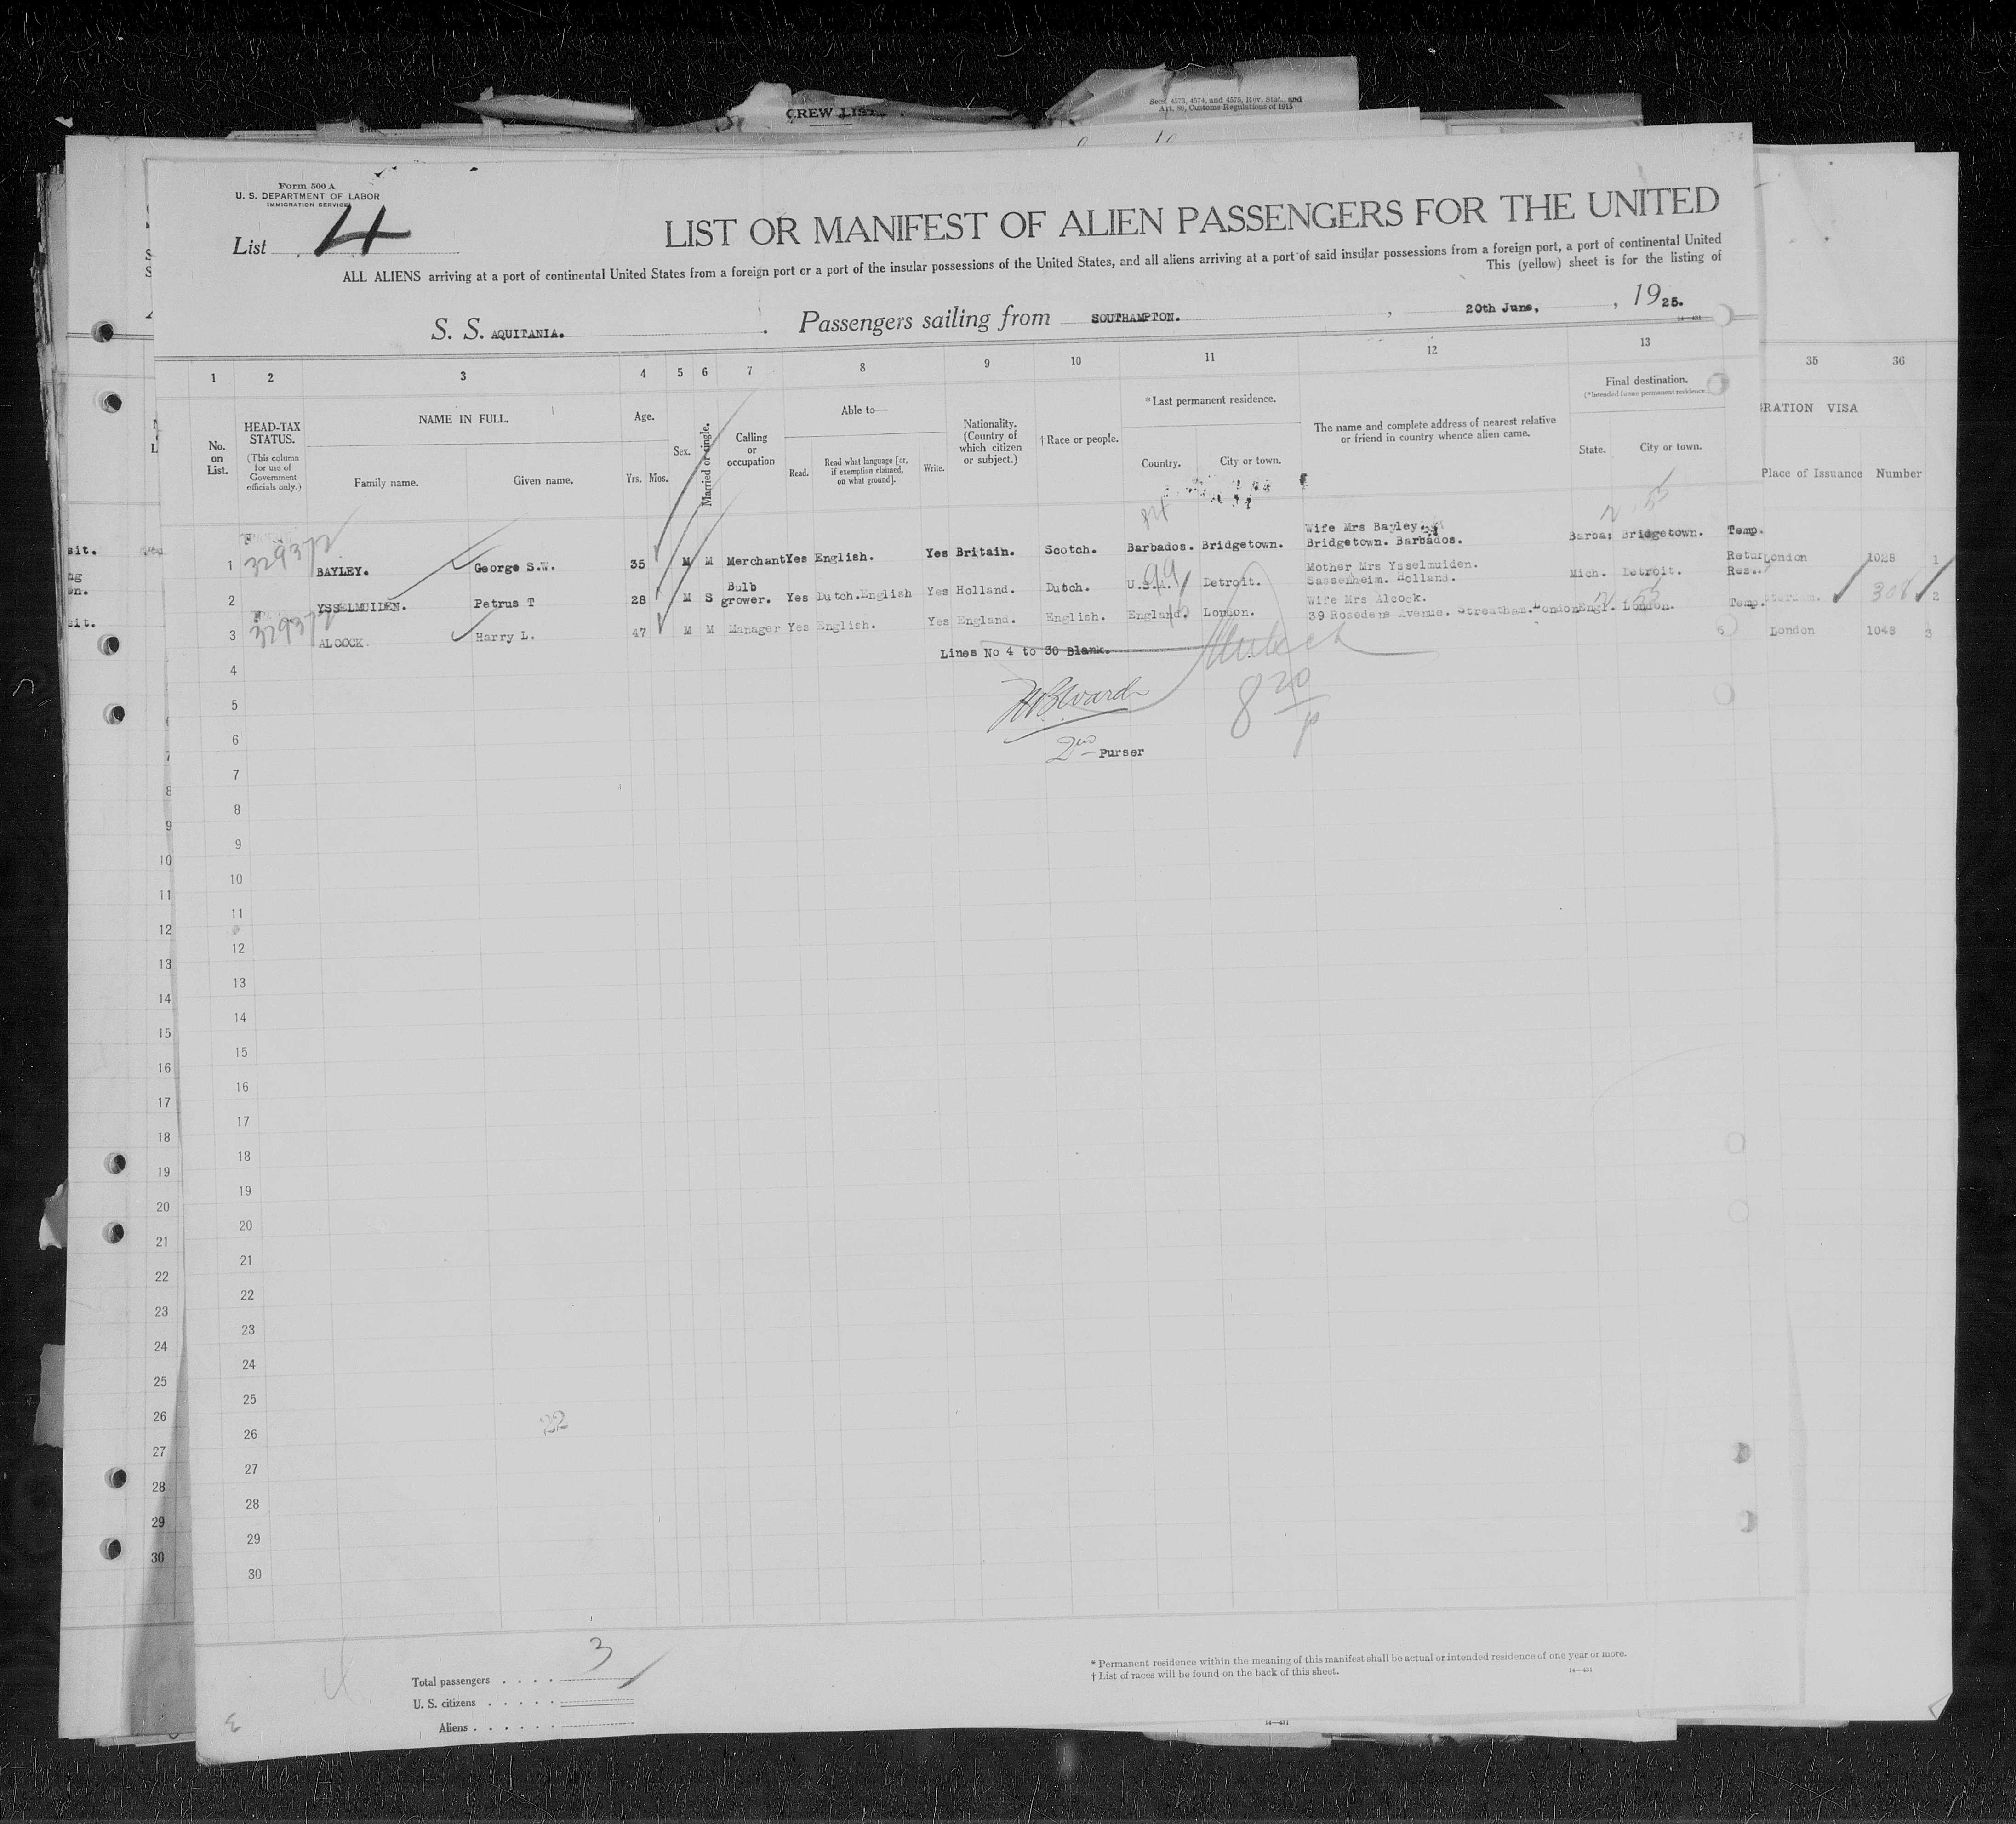 CREW LIST
Secs. 4573, 4574, and 4575, Rev. Stat., and
Art. 88, Customs Regulations of 1915
Form 500 A
U. S. DEPARTMENT OF LABOR
IMMIGRATION SERVICE
List 4
LIST OR MANIFEST OF ALIEN PASSENGERS FOR THE UNITED
ALL ALIENS arriving at a port of continental United States from a foreign port or a port of the insular possessions of the United States, and all aliens arriving at a port of said insular possessions from a foreign port, a port of continental United
This (yellow) sheet is for the listing of
S. S. AQUITANIA. Passengers sailing from SOUTHAMPTON. , 20th June, , 1925.
1 2 3 4 5 6 7 8 9 10 11 12 13 35 36
No. on List.
HEAD-TAX STATUS.
(This column for use of Government officials only.)
NAME IN FULL.
Family name. Given name.
Age.
Yrs. Mos.
Sex.
Married or single.
Calling or occupation
Able to—
Read. Read what language [or, if exemption claimed, on what ground]. Write.
Nationality. (Country of which citizen or subject.)
†Race or people.
*Last permanent residence.
Country. City or town.
The name and complete address of nearest relative or friend in country whence alien came.
Final destination.
(*Intended future permanent residence
State. City or town.
RATION VISA
Place of Issuance Number
1 32937/2 BAYLEY. George S.W. 35 M M Merchant Yes English. Yes Britain. Scotch. Barbados. Bridgetown. Wife Mrs Bayley. Bridgetown. Barbados. Barba; Bridgetown. Temp. London 1025 1
2 YSSELMUIDEN. Petrus T 28 M S Bulb grower. Yes Dutch.English Yes Holland. Dutch. U.S.A. Detroit. Mother Mrs Ysselmuiden. Sassenheim. Holland. Mich. Detroit. Retur Res. 2
3 32937/2 ALCOCK Harry L. 47 M M Manager Yes English. Yes England. English. England. London. Wife Mrs Alcock. 39 Rosedene Avenue. Streatham. London Engl. London. Temp. London 1048 3
Lines No 4 to 30 Blank.
4
5
8 20/p
6
2nd Purser
7
8
9
10
11
12
13
14
15
16
17
18
19
20
21
22
23
24
25
22
26
27
28
29
30
Total passengers . . . . 3
U. S. citizens . . . . .
Aliens . . . . . .
* Permanent residence within the meaning of this manifest shall be actual or intended residence of one year or more.
† List of races will be found on the back of this sheet.
14—431
14—431